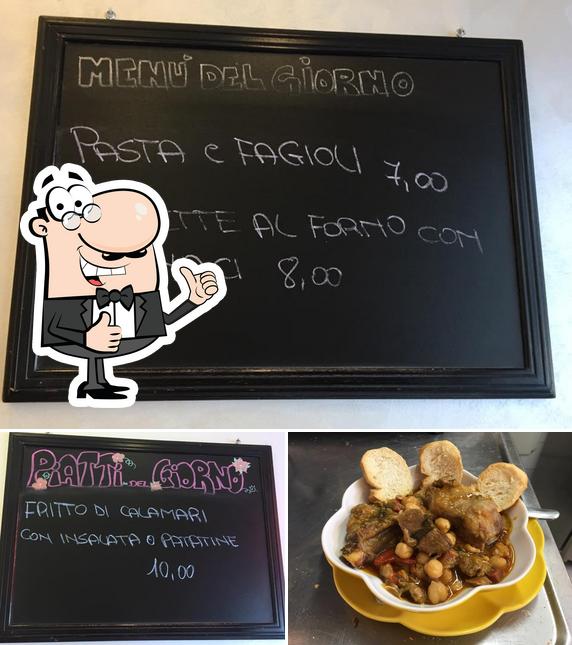 MENÙ DEL GIORNO
PASTA e FAGIOLI 7,00
AL FORNO CON
8,00
PIATTI DEL GIORNO
FRITTO DI CALAMARI
CON INSALATA O PATATINE
10,00